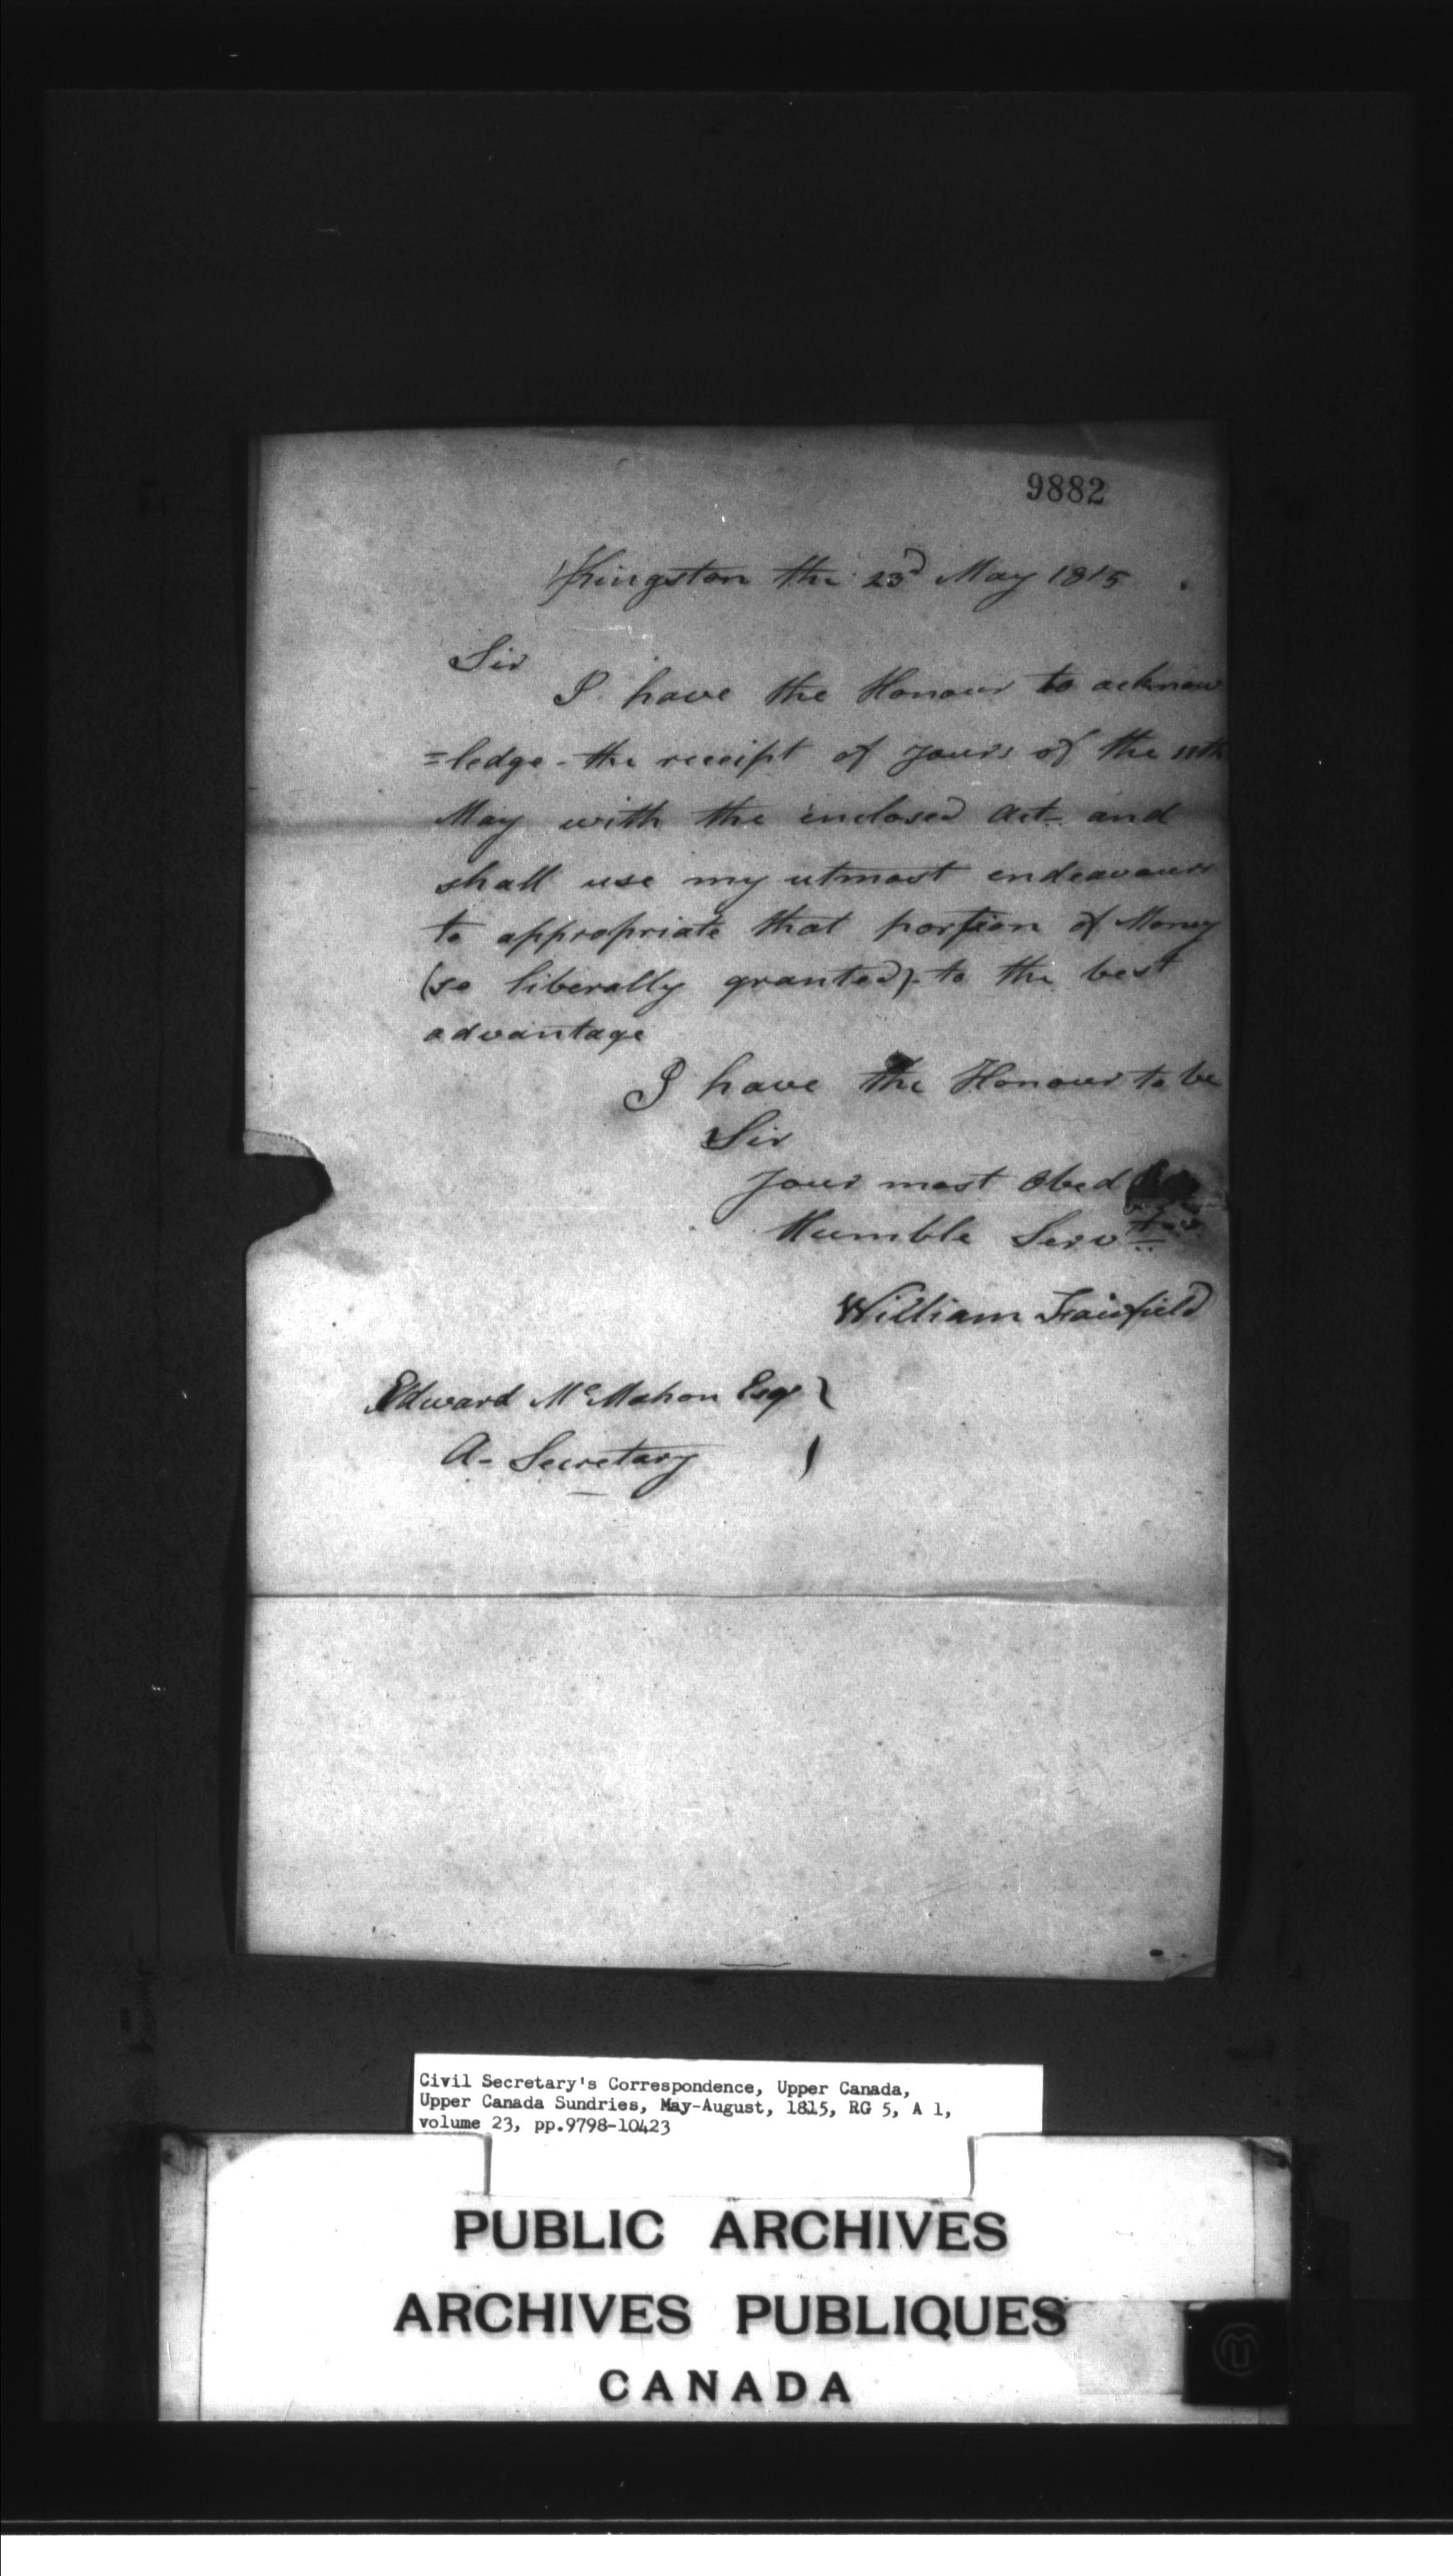 9882
Kingston the 23d May 1815
Sir
I have the Honour to acknow
=ledge - the receipt of yours of the 11th
May with the inclosed Act - and
shall use my utmost endeavours
to appropriate that portion of Money
(so liberally granted) - to the best
advantage
I have the Honour to be
Sir
Your most Obed
Humble Servt
William Fairfield
Edward McMahon Esqr
A - Secretary
Civil Secretary's Correspondence, Upper Canada,
Upper Canada Sundries, May-August, 1815, RG 5, A 1,
volume 23, pp.9798-10423
PUBLIC ARCHIVES
ARCHIVES PUBLIQUES
CANADA